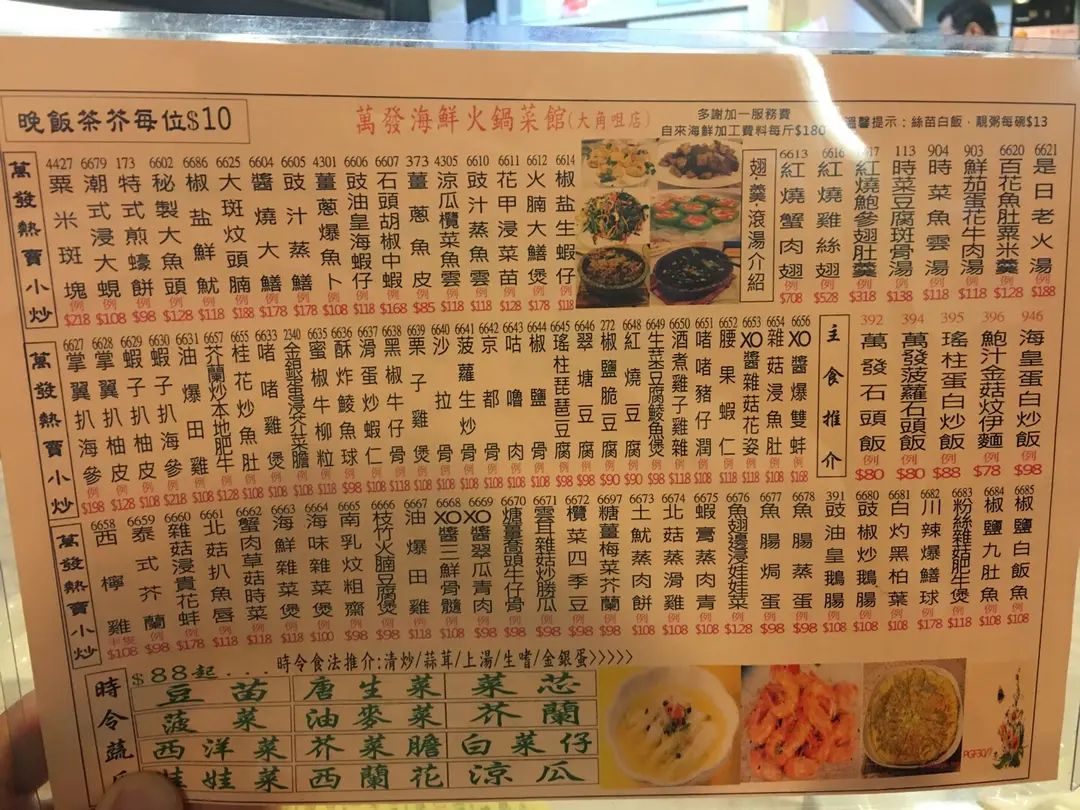 晚飯茶芥每位$10
萬發海鮮火鍋菜館(大角咀店)
多謝加一服務費
自來海鮮加工費料每斤$180
溫馨提示:絲苗白飯,靚粥每碗$13
萬發熱賣小炒
4427 粟米斑塊 例 $218
6679 潮式浸大蜆 例 $108
173 特式煎蠔餅 例 $98
6602 秘製大魚頭 例 $128
6686 椒鹽鮮魷 例 $118
6625 大斑炆頭腩 例 $188
6604 醬燒大鱔 例 $178
6605 豉汁蒸鱔 例 $178
4301 薑蔥爆魚卜 例 $108
6606 豉油皇海蝦仔 例 $118
6607 石頭胡椒中蝦 例 $168
373 薑蔥魚皮 例 $85
4305 涼瓜欖菜魚雲 例 $118
6610 豉汁蒸魚雲 例 $118
6611 花甲浸菜苗 例 $128
6612 火腩大鱔煲 例 $178
6614 椒鹽生蝦仔 例 $118
翅羹滾湯介紹
6613 紅燒蟹肉翅 例 $708
6616 紅燒雞絲翅 例 $528
紅燒鮑參翅肚羹 例 $318
113 時菜豆腐斑骨湯 例 $138
904 時菜魚雲湯 例 $118
903 鮮茄蛋花牛肉湯 例 $118
6620 百花魚肚粟米羹 例 $128
6621 是日老火湯 例 $188
萬發熱賣小炒
6627 掌翼扒海參 例 $198
6628 掌翼扒柚皮 例 $128
6629 蝦子扒柚皮 例 $108
6630 蝦子扒海參 例 $218
6631 油爆田雞 例 $108
6657 芥蘭炒本地肥牛 例 $128
6655 桂花炒魚肚 例 $108
6633 啫啫雞煲 例 $108
2340 金銀蛋浸芥菜膽 例 $118
6635 蜜椒牛柳粒 例 $118
6636 酥炸鯪魚球 例 $108
6637 滑蛋炒蝦仁 例 $98
6638 黑椒牛仔骨 例 $108
6639 栗子雞煲 例 $118
6640 沙拉骨 例 $108
6641 菠蘿生炒骨 例 $108
6642 京都骨 例 $108
6643 咕嚕肉 例 $108
6644 椒鹽骨 例 $108
6645 瑤柱琵琶豆腐 例 $98
6646 翠塘豆腐 例 $98
272 椒鹽脆豆腐 例 $90
6648 紅燒豆腐 例 $90
6649 生菜豆腐鯪魚煲 例 $98
6650 酒煮雞子雞雜 例 $118
6651 啫啫豬仔潤 例 $108
6652 腰果蝦仁 例 $108
6653 XO醬雜菇花姿 例 $118
6654 雜菇浸魚肚 例 $108
6656 XO醬爆雙蚌 例 $168
主食推介
392 萬發石頭飯 例 $80
394 萬發菠蘿石頭飯 例 $80
395 瑤柱蛋白炒飯 例 $88
396 鮑汁金菇炆伊麵 例 $78
946 海皇蛋白炒飯 例 $98
萬發熱賣小炒
6658 西檸雞 半隻 $108
6659 泰式芥蘭 例 $98
6660 雜菇浸貴花蚌 例 $178
6661 北菇扒魚唇 例 $118
6662 蟹肉草菇時菜 例 $118
6663 海鮮雜菜煲 例 $118
6664 海味雜菜煲 例 $100
6665 南乳炆粗齋 例 $98
6666 枝竹火腩豆腐煲 例 $98
6667 油爆田雞 例 $118
6668 XO醬三鮮骨髓 例 $98
6669 XO醬翠瓜青肉 例 $98
6670 煻薑蔥頭牛仔骨 例 $98
6671 雲耳雜菇炒勝瓜 例 $98
6672 欖菜四季豆 例 $98
6697 糖薑梅菜芥蘭 例 $98
6673 土魷蒸肉餅 例 $108
6674 北菇蒸滑雞 例 $108
6675 蝦膏蒸肉青 例 $108
6676 魚翅邊浸娃娃菜 例 $128
6677 魚腸焗蛋 例 $98
6678 魚腸蒸蛋 例 $98
391 豉油皇鵝腸 例 $108
6680 豉椒炒鵝腸 例 $108
6681 白灼黑柏葉 例 $108
6682 川辣爆鱔球 例 $178
6683 粉絲雜菇肥牛煲 例 $108
6684 椒鹽九肚魚 例 $108
6685 椒鹽白飯魚 例 $108
時令食法推介:清炒/蒜茸/上湯/生嗜/金銀蛋>>>>>
時令蔬
$88起...
豆苗 唐生菜 菜芯
菠菜 油麥菜 芥蘭
西洋菜 芥菜膽 白菜仔
娃娃菜 西蘭花 涼瓜